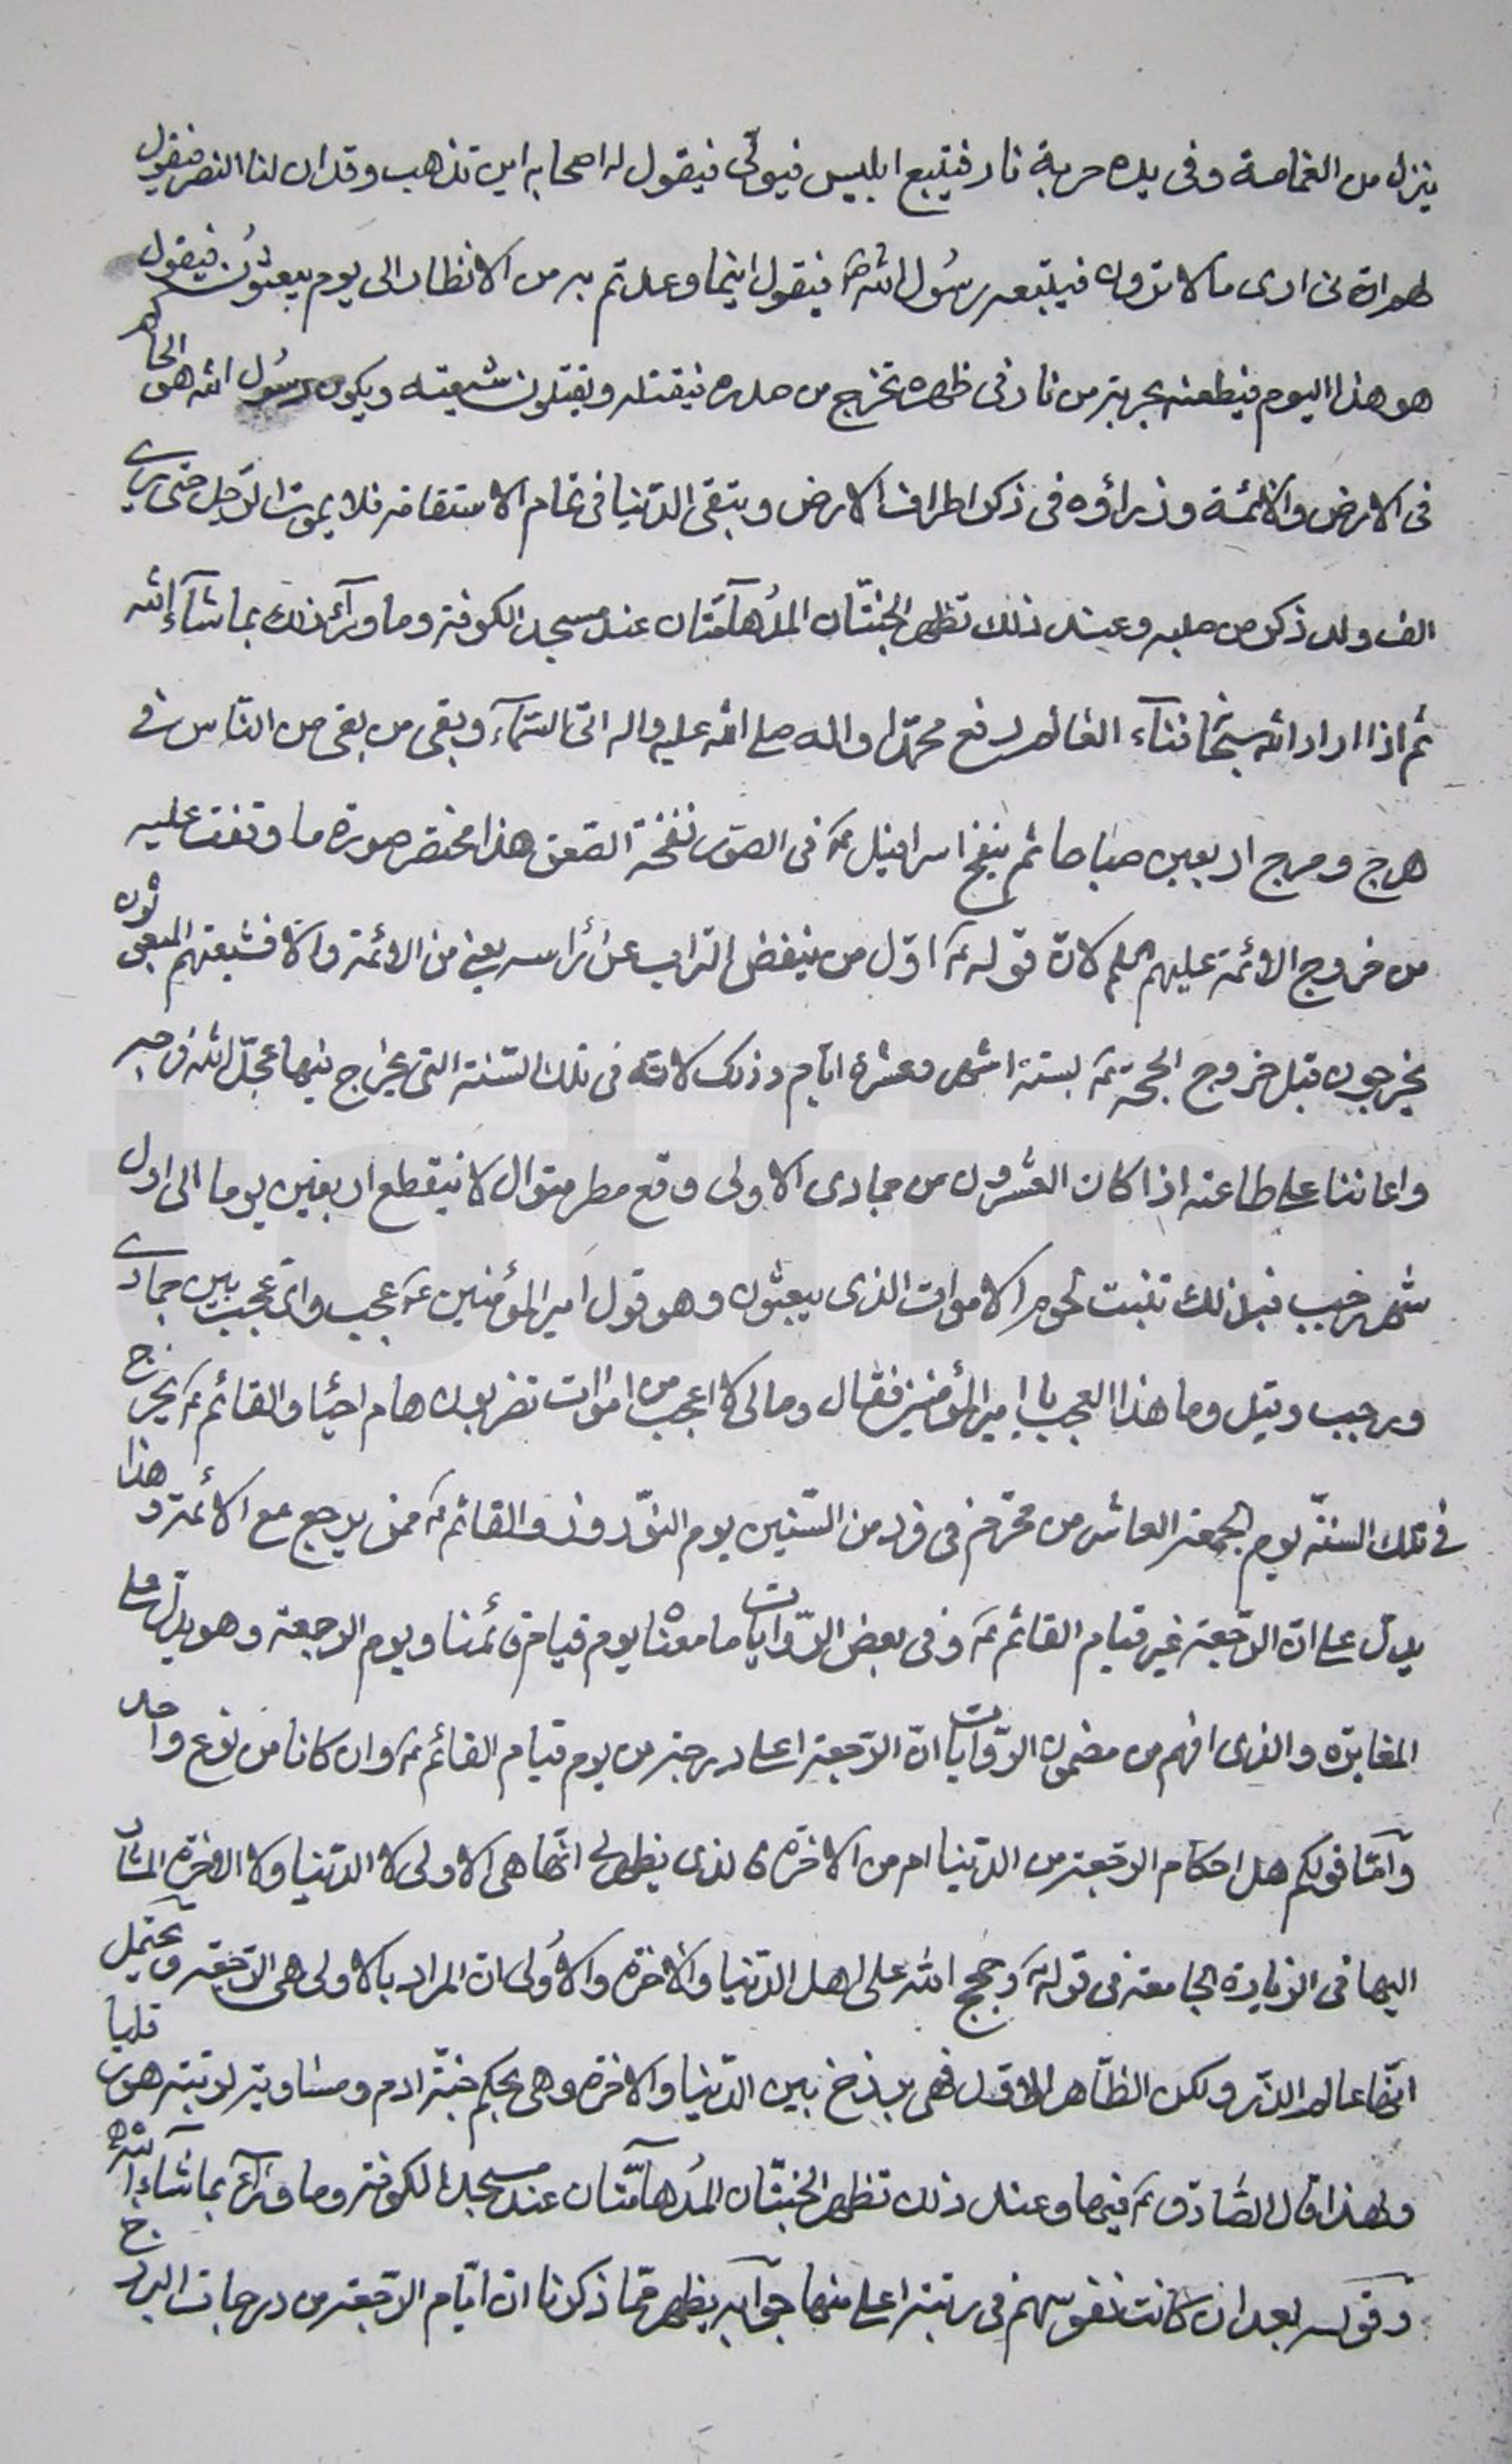 ينزل من الغمامة وفى يده حربة نار فيتبع ابليس فيولّى فيقول له اصحابه اين تذهب وقد ان لنا النصر فيقول
لهم انى ارى ما لا ترون فيتبعه رسُول الله ص فيقول اينما وعدتم به من الانظار الى يوم يبعثون فيقول
هو هذا اليوم فيطعنه بحربة من نار فى ظهره تخرج من صدره فيقتله ويقتلون شيعته ويكون رسُول الله هو الحاكم
فى الارض والائمة وزراؤه فى ذكر اطراف الارض وتبقى الدنيا فى تمام الاستقامة فلا يموت الرّجل حتى يرى
الف ولد ذكر من صلبه وعند ذلك تظهر الجنّتان المدهآمّتان عند مسجد الكوفة وما ورآء ذلك بما شآء الله
ثم اذا اراد الله سبحانه فنآء العالم رفع محمّدا واله صلى الله عليه واله الى السّمآء وبقى من بقى من النّاس فى
هرج ومرج اربعين صباحا ثم ينفخ اسرافيل ع فى الصّور نفخة الصّعق هذا مختصر صورة ما وقفت عليه
من خروج الائمة عليهم السلم لانّ قوله ع اوّل من ينفض التراب عن رأسه يعنى من الائمة والّا فشيعتهم المبعوثون
يخرجون قبل خروج الحجّة ع بستة اشهر وعشرة ايّام وذلك لانّه فى تلك السّنة التى يخرج فيها عجّل الله فرجه
واعاننا على طاعته اذا كان العشرون من جمادى الاولى وقع مطر متوال لا ينقطع اربعين يوما الى اول
شهر رجب فبذلك تنبت لحوم الاموات الذى يبعثون وهو قول امير المؤمنين ع عجب واىّ عجب بين جمادى
ورجب وقيل وما هذا العجب يا امير المؤمنين فقال ومالى لا اعجب من اموات تضربون هام احيا والقائم ع يخرج
فى تلك السنّة يوم الجمعة العاشر من محرّم فى فرد من السّنين يوم النّوروز والقائم ع ممن يرجع مع الائمة وهذا
يدلّ على انّ الرّجعة غير قيام القائم ع وفى بعض الرّوايات ما معناه يوم قيام قائمنا ويوم الرجعة وهو يدلّ على
المغايرة والذى افهم من مضمون الرّوايات انّ الرّجعة اعلى درجة من يوم قيام القائم ع وان كانا من نوع واحد
وامّا قولكم هل احكام الرجعة من الدّنيا ام من الاخرة فالذى يظهر لى انّها هى الاولى لا الدّنيا ولا الاخرة المشار
اليها فى الزيارة الجامعة فى قوله ع وحجج الله على اهل الدّنيا والاخرة والاُولى انّ المراد بالاولى هى الرّجعة ويحتمل
انّها عالم الذّر ولكن الظّاهر الاوّل فهى برزخ بين الدّنيا والاخرة وهى بحكم جنّة ادم ومساوية لرتبة هورقليا
ولهذا قال الصّادق ع فيها وعند ذلك تظهر الجنّتان المدهآمّتان عند مسجد الكوفة وما ورآئه بما شآء الله
وقوله بعد ان كانت نفوسهم فى رتبة اعلى منها جوآبه يظهر ممّا ذكرنا انّ ايّام الرّجعة من درجات البرزخ